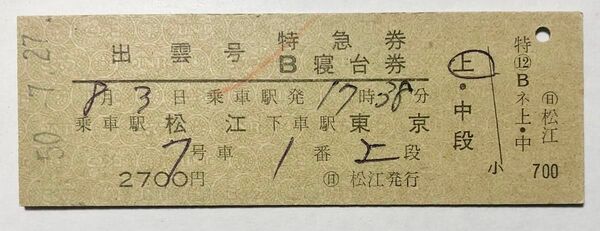 50.7.27
出雲号 特急券
B寝台券
8月3日 乗車駅発17時38分
乗車駅 松江 下車駅 東京
7号車 1番上段
2700円 ㊐松江発行
上・中段
小
特⑫Bネ上・中
㊐松江
700